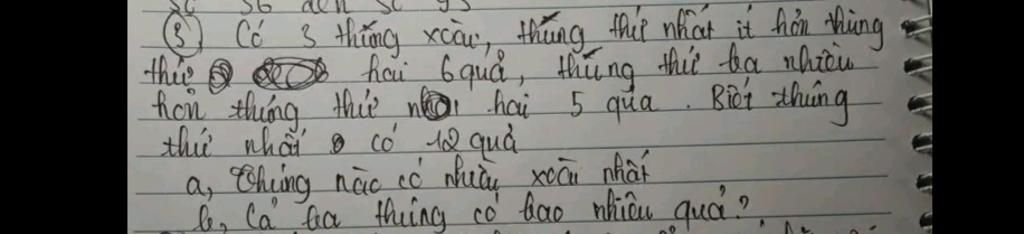 56 đến sc 95
③ Có 3 thùng xoài, thùng thứ nhất ít hơn thùng
thứ hai 6 quả, thùng thứ ba nhiều
hơn thùng thứ hai 5 quả. Biết thùng
thứ nhất có 12 quả
a, Thùng nào có nhiều xoài nhất
b, Cả ba thùng có bao nhiêu quả?